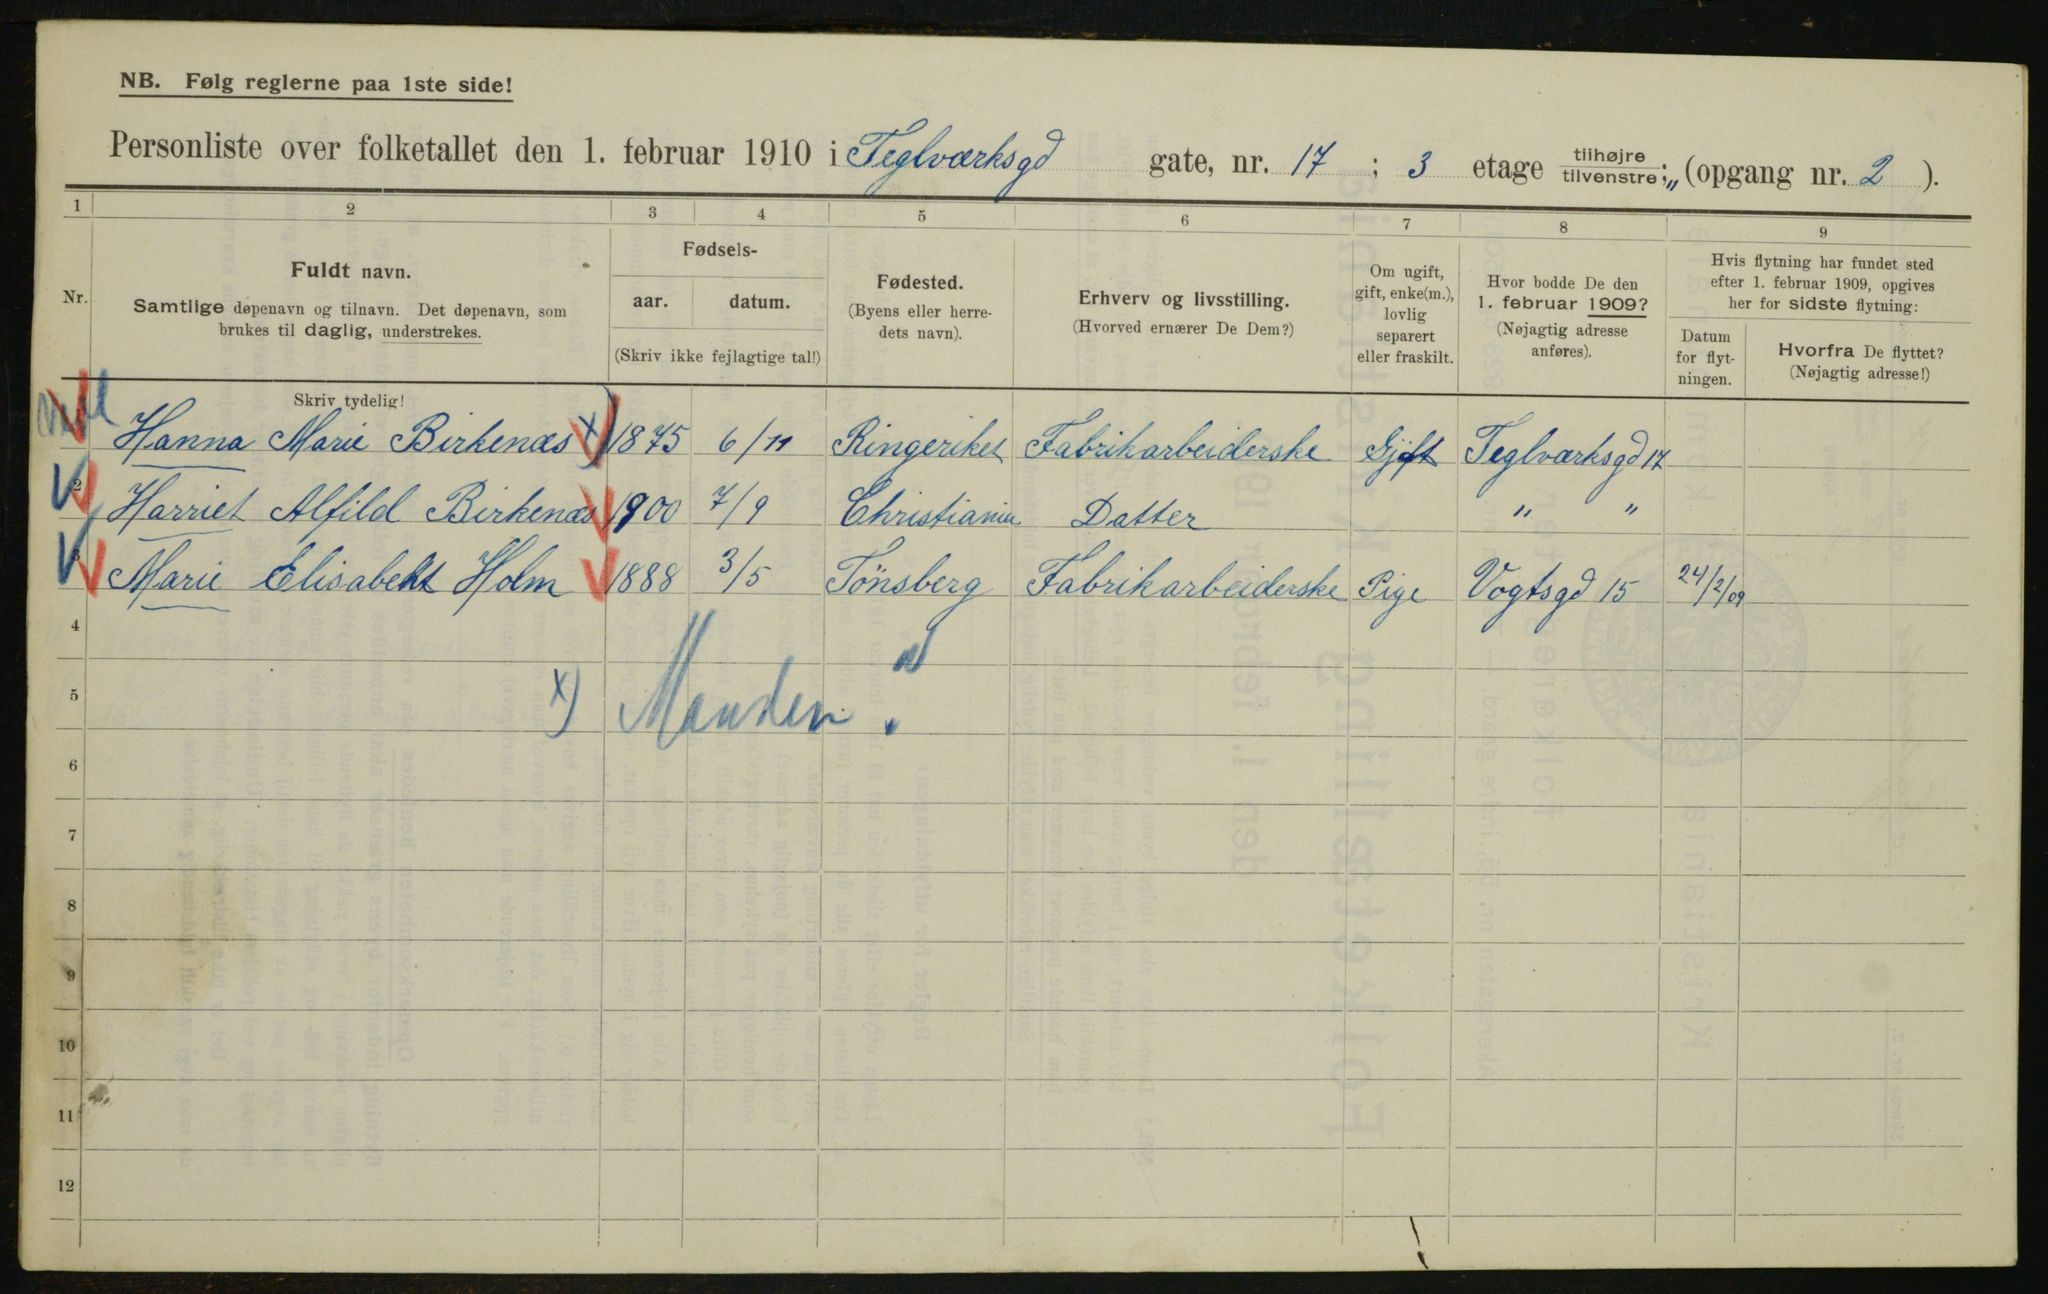 NB. Følg reglerne paa 1ste side!
Personliste over folketallet den 1. februar 1910 i Teglværksgd gate, nr. 17 ; 3 etage tilhøjre tilvenstre; „ (opgang nr. 2 ).
1 2 3 4 5 6 7 8 9
Nr.
Fuldt navn.
Samtlige døpenavn og tilnavn. Det døpenavn, som
brukes til daglig, understrekes.
Skriv tydelig!
Fødsels-
aar. datum.
(Skriv ikke fejlagtige tal!)
Fødested.
(Byens eller herre-
dets navn).
Erhverv og livsstilling.
(Hvorved ernærer De Dem?)
Om ugift,
gift, enke(m.),
lovlig
separert
eller fraskilt.
Hvor bodde De den
1. februar 1909?
(Nøjagtig adresse
anføres).
Hvis flytning har fundet sted
efter 1. februar 1909, opgives
her for sidste flytning:
Datum
for flyt-
ningen.
Hvorfra De flyttet?
(Nøjagtig adresse!)
Hanna Marie Birkenæs x) 1875 6/11 Ringeriket Fabrikarbeiderske Gjft Teglværksgd 17
2 Harriet Alfild Birkenæs 1900 7/9 Christiania Datter „ „
3 Marie Elisabeht Holm 1888 3/5 Tönsberg Fabrikarbeiderske Pige Vogtsgd 15 24/2/09
4
5 x) Manden ?
6
7
8
9
10
11
12